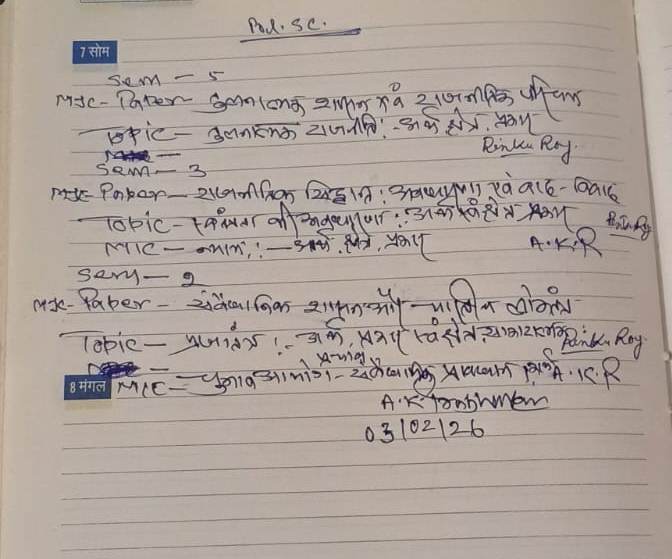 Pol. SC.
7 सोम
Sem - 5
MJC - Paper - तुलनात्मक शासन एवं राजनीतिक
Topic - तुलनात्मक राजनीति :- अर्थ, क्षेत्र, प्रकार
Rinku Roy.
Sem - 3
MJC - Paper - राजनीतिक सिद्धांत : अवधारणा एवं वाद - विवाद
Topic - स्वतंत्रता की अवधारणा : अर्थ एवं क्षेत्र प्रकार
Rinku Roy
MIC - न्याय : - अर्थ, क्षेत्र, प्रकार
A.K.R
Sem - 2
MJC - Paper - संवैधानिक शासन और लोकतंत्र
Topic - प्रजातंत्र :- अर्थ, प्रकार एवं क्षेत्र,
Rinku Roy.
8 मंगल
MIC - चुनाव आयोग - संवैधानिक प्रावधान
A.K.R
03/02/26